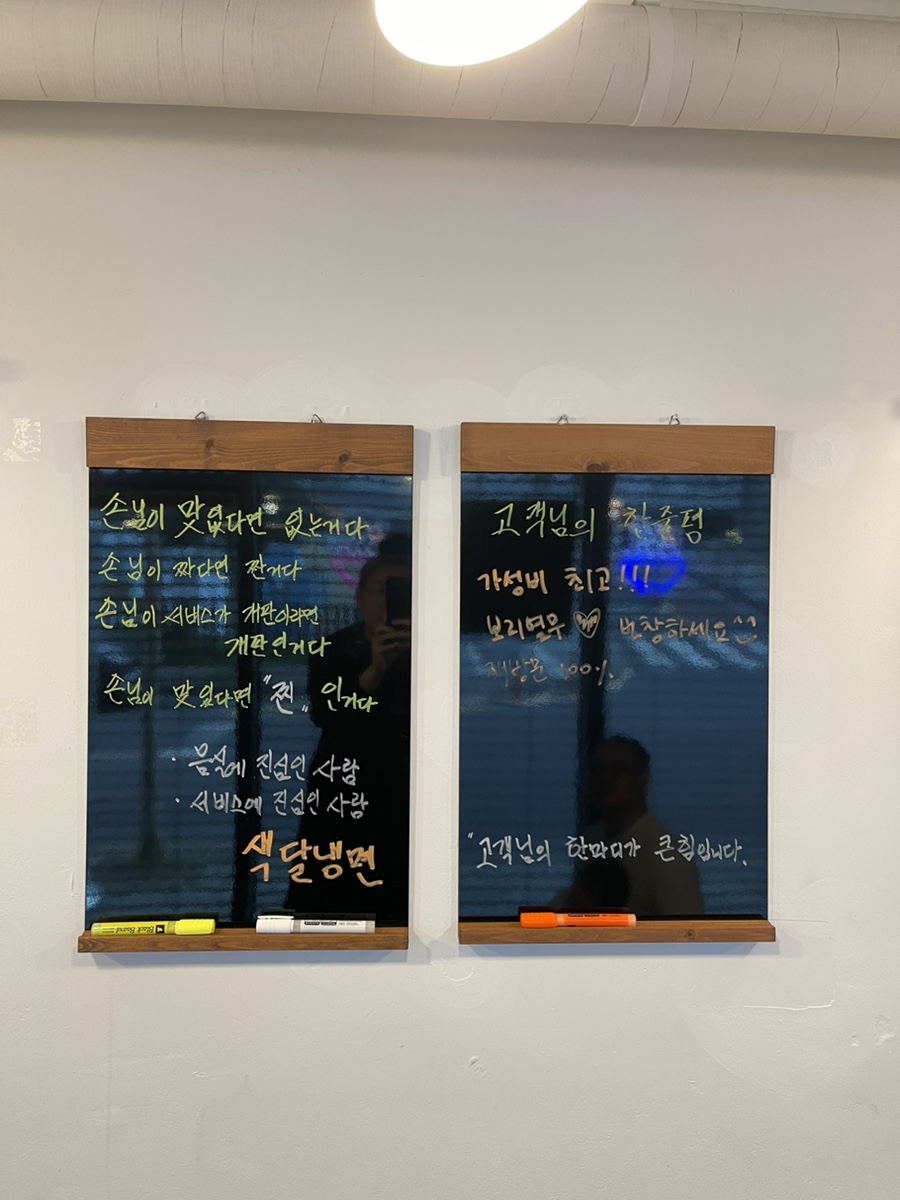 손님이 맛없다면 없는거다
손님이 짜다면 짠거다
손님이 서비스가 개판이라면
개판인거다
손님이 맛있다면 "찐" 인거다
· 음식에 진심인 사람
· 서비스에 진심인 사람
색달냉면
Black Board
고객님의 한줄평
가성비 최고!!!
보리열무♡ 번창하세요^^
재방문 100%
"고객님의 한마디가 큰힘입니다.